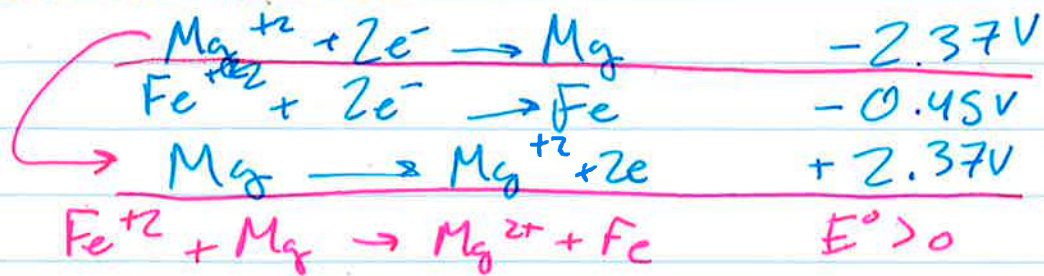 Mg⁺² + 2e⁻ → Mg -2.37V
Fe⁺² + 2e⁻ → Fe -0.45V
Mg → Mg⁺² + 2e +2.37V
Fe⁺² + Mg → Mg²⁺ + Fe E° > 0